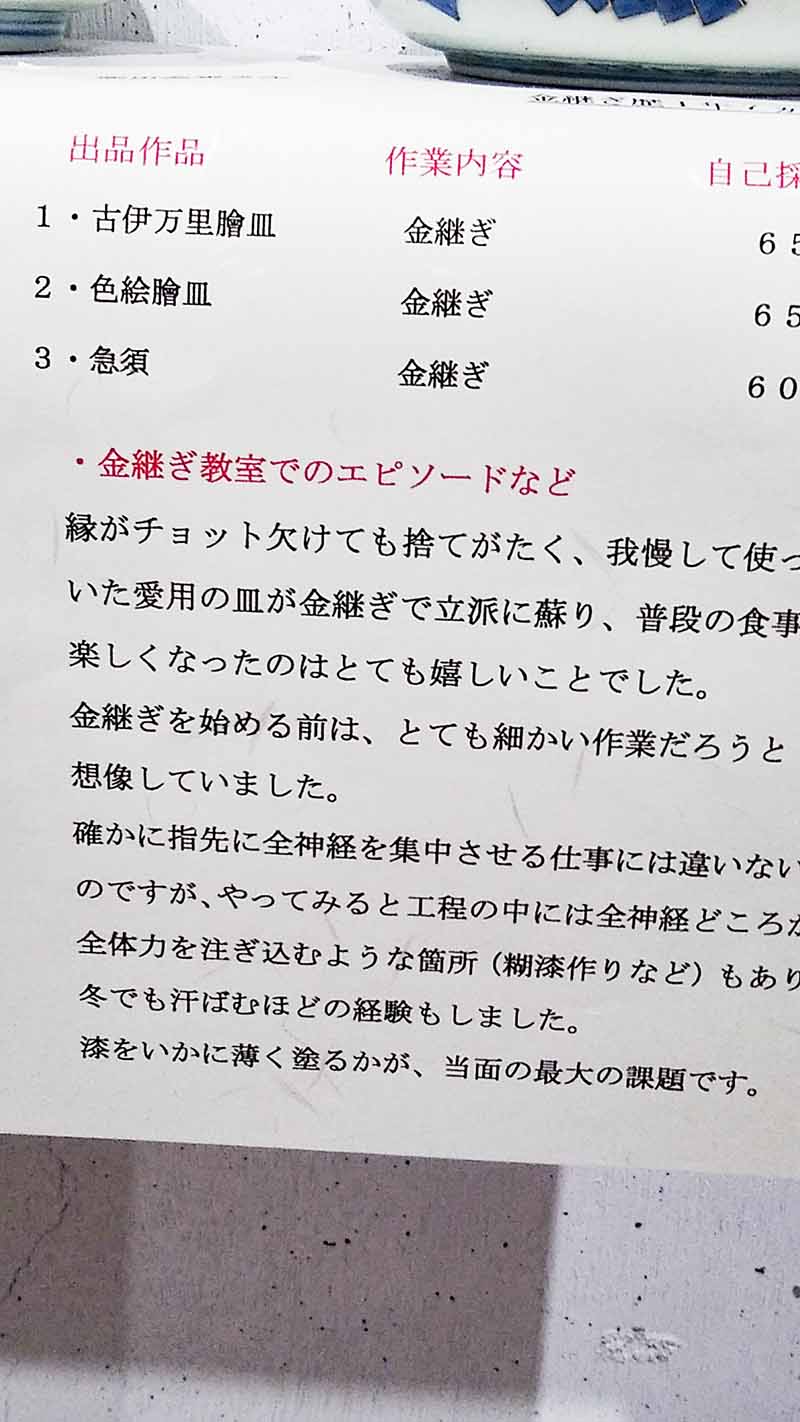 出品作品 作業内容 自己採
1・古伊万里膾皿 金継ぎ 65
2・色絵膾皿 金継ぎ 65
3・急須 金継ぎ 60
・金継ぎ教室でのエピソードなど
縁がチョット欠けても捨てがたく、我慢して使っ
いた愛用の皿が金継ぎで立派に蘇り、普段の食事
楽しくなったのはとても嬉しいことでした。
金継ぎを始める前は、とても細かい作業だろうと
想像していました。
確かに指先に全神経を集中させる仕事には違いない
のですが、やってみると工程の中には全神経どころか
全体力を注ぎ込むような箇所（糊漆作りなど）もあり
冬でも汗ばむほどの経験もしました。
漆をいかに薄く塗るかが、当面の最大の課題です。